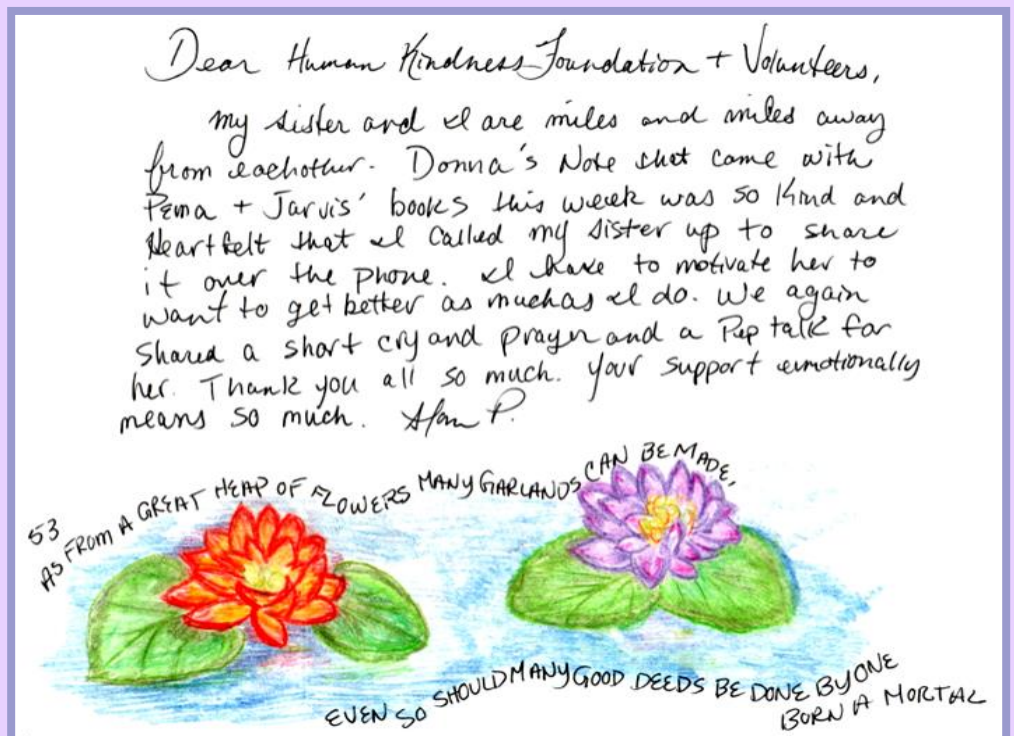 Dear Human Kindness Foundation + Volunteers,
My sister and I are miles and miles away
from eachother. Donna's Note that came with
Pema + Jarvis' books this week was so Kind and
Heartfelt that I called my sister up to share
it over the phone. I have to motivate her to
want to get better as much as I do. We again
shared a short cry and prayer and a Pep talk for
her. Thank you all so much. Your support emotionally
means so much. P.
53
AS FROM A GREAT HEAP OF FLOWERS MANY GARLANDS CAN BE MADE,
EVEN SO SHOULD MANY GOOD DEEDS BE DONE BY ONE
BORN A MORTAL